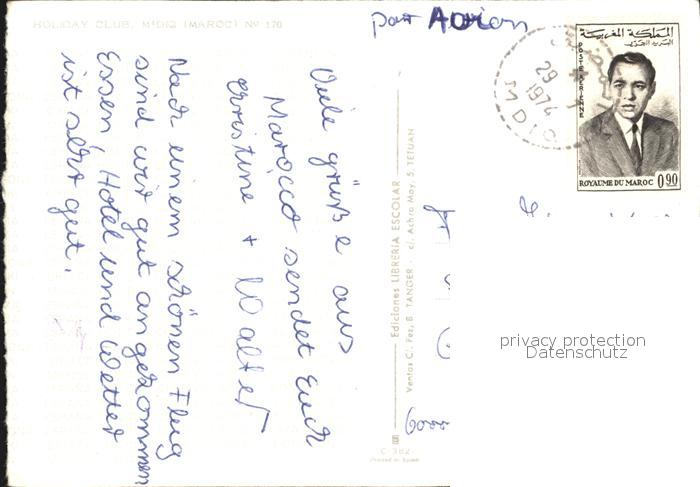 HOLIDAY CLUB. M'DIQ (MAROC) Nº 170
par Avion
29
1974
M'DIQ
المملكة المغربية
البريد الجوي
POSTE AERIENNE
ROYAUME DU MAROC 0,90
Viele grüße aus
Marocco sendet Euch
Christine + Walter
Nach einem schönen Flug
sind wir gut angekommen
Essen, Hotel und Wetter
ist sehr gut.
Ediciones LIBRERIA ESCOLAR
Ventas C/. Fez, 8 TANGER - c/. Achra May, 5. TETUAN
C - 382
Printed in Spain
6000
privacy protection
Datenschutz